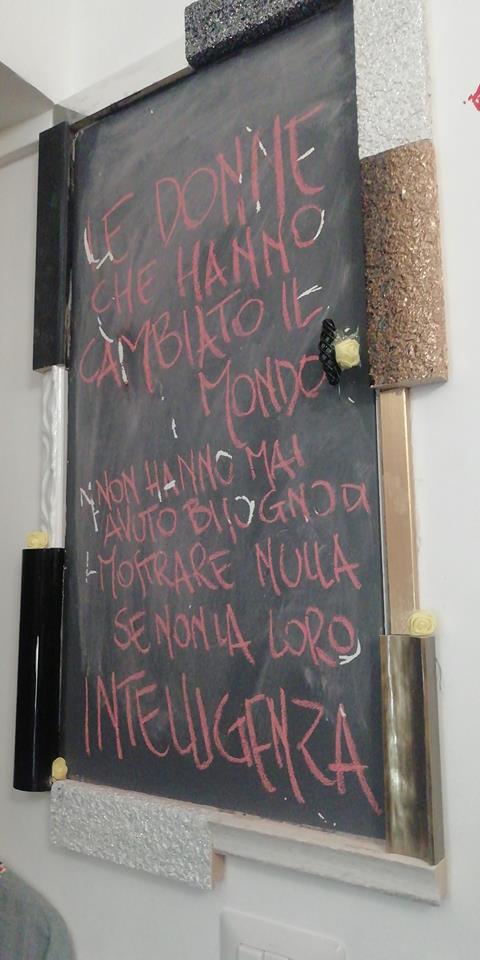 LE DONNE
CHE HANNO
CAMBIATO IL
MONDO
NON HANNO MAI
AVUTO BISOGNO DI
MOSTRARE NULLA
SE NON LA LORO
INTELLIGENZA